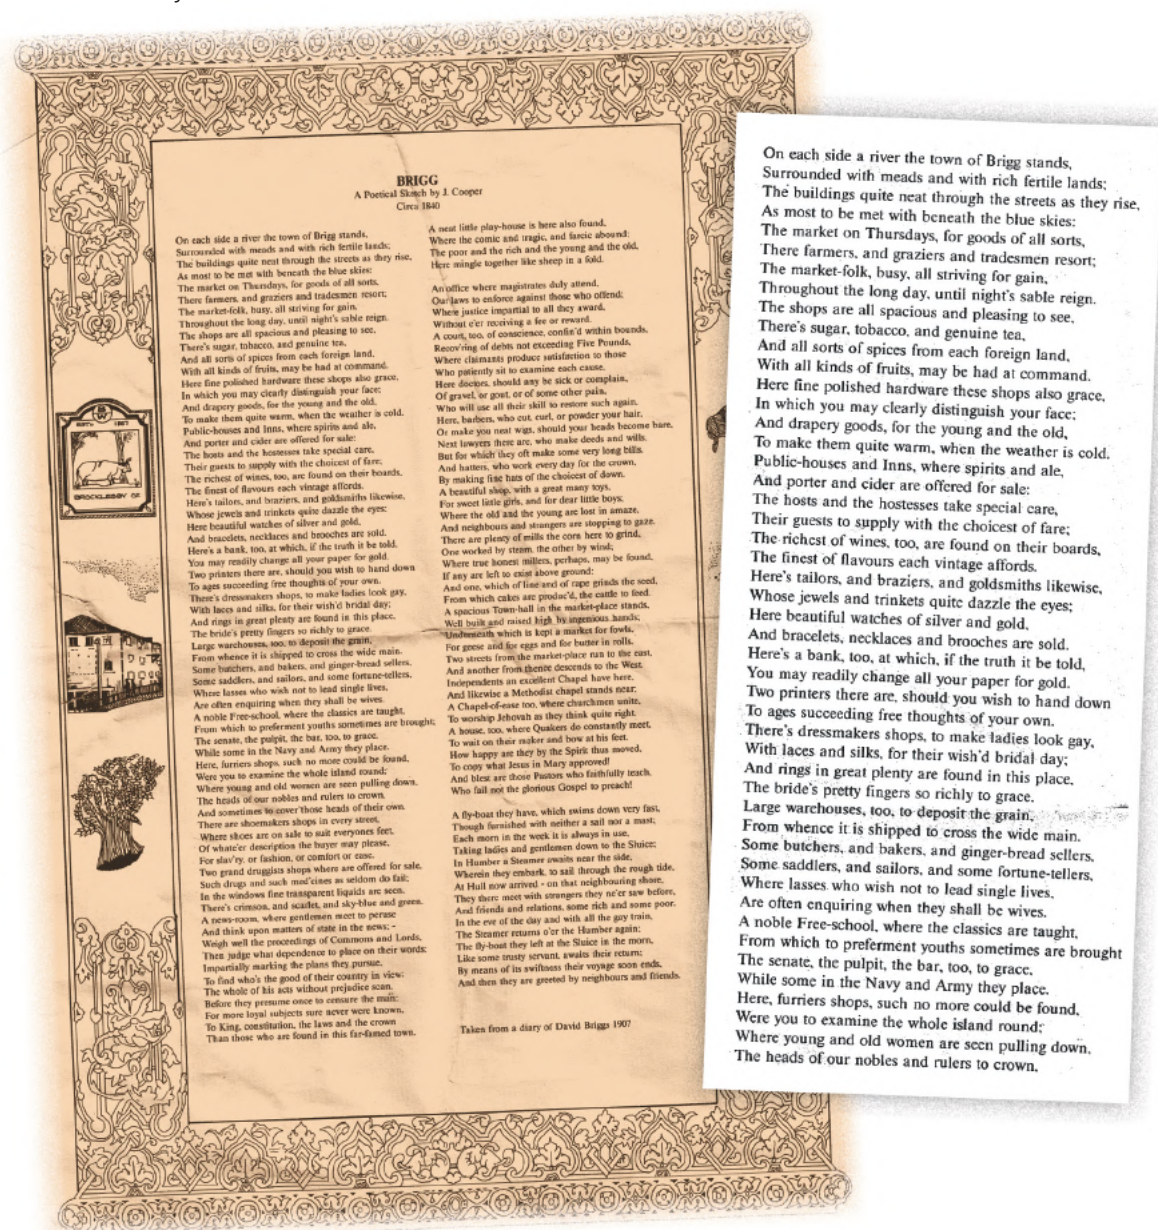 BRIGG
A Poetical Sketch by J. Cooper
Circa 1840
On each side a river the town of Brigg stands,
Surrounded with meads and with rich fertile lands;
The buildings quite neat through the streets as they rise,
As most to be met with beneath the blue skies:
The market on Thursdays, for goods of all sorts,
There farmers, and graziers and tradesmen resort;
The market-folk, busy, all striving for gain,
Throughout the long day, until night's sable reign.
The shops are all spacious and pleasing to see,
There's sugar, tobacco, and genuine tea,
And all sorts of spices from each foreign land,
With all kinds of fruits, may be had at command.
Here fine polished hardware these shops also grace,
In which you may clearly distinguish your face;
And drapery goods, for the young and the old,
To make them quite warm, when the weather is cold.
Public-houses and Inns, where spirits and ale,
And porter and cider are offered for sale:
The hosts and the hostesses take special care,
Their guests to supply with the choicest of fare;
The richest of wines, too, are found on their boards,
The finest of flavours each vintage affords.
Here's tailors, and braziers, and goldsmiths likewise,
Whose jewels and trinkets quite dazzle the eyes:
Here beautiful watches of silver and gold,
And bracelets, necklaces and brooches are sold.
Here's a bank, too, at which, if the truth it be told,
You may readily change all your paper for gold.
Two printers there are, should you wish to hand down
To ages succeeding free thoughts of your own.
There's dressmakers shops, to make ladies look gay,
With laces and silks, for their wish'd bridal day;
And rings in great plenty are found in this place,
The bride's pretty fingers so richly to grace.
Large warehouses, too, to deposit the grain,
From whence it is shipped to cross the wide main.
Some butchers, and bakers, and ginger-bread sellers,
Some saddlers, and sailors, and some fortune-tellers.
Where lasses who wish not to lead single lives,
Are often enquiring when they shall be wives.
A noble Free-school, where the classics are taught,
From which to preferment youths sometimes are brought;
The senate, the pulpit, the bar, too, to grace,
While some in the Navy and Army they place.
Here, furriers shops, such no more could be found,
Were you to examine the whole island round;
Where young and old women are seen pulling down,
The heads of our nobles and rulers to crown.
And sometimes to cover those heads of their own.
There are shoemakers shops in every street,
Where shoes are on sale to suit everyones feet,
Of whate'er description the buyer may please,
For slav'ry, or fashion, or comfort or ease.
Two grand druggists shops where are offered for sale,
Such drugs and such med'cines as seldom do fail;
In the windows fine transparent liquids are seen,
There's crimson, and scarlet, and sky-blue and green.
A news-room, where gentlemen meet to peruse
And think upon matters of state in the news; -
Weigh well the proceedings of Commons and Lords,
Then judge what dependence to place on their words;
Impartially marking the plans they pursue,
To find who's the good of their country in view;
The whole of his acts without prejudice scan,
Before they presume once to censure the man:
For more loyal subjects sure never were known,
To King, constitution, the laws and the crown
Than those who are found in this far-famed town.
A neat little play-house is here also found,
Where the comic and tragic, and farcic abound;
The poor and the rich and the young and the old,
Here mingle together like sheep in a fold.
An office where magistrates duly attend,
Our laws to enforce against those who offend;
Where justice impartial to all they award,
Without e'er receiving a fee or reward.
A court, too, of conscience, confin'd within bounds,
Recov'ring of debts not exceeding Five Pounds,
Where claimants produce satisfaction to those
Who patiently sit to examine each cause.
Here doctors, should any be sick or complain,
Of gravel, or gout, or of some other pain,
Who will use all their skill to restore such again.
Here, barbers, who cut, curl, or powder your hair,
Or make you neat wigs, should your heads become bare.
Next lawyers there are, who make deeds and wills,
But for which they oft make some very long bills.
And hatters, who work every day for the crown,
By making fine hats of the choicest of down.
A beautiful shop, with a great many toys,
For sweet little girls, and for dear little boys;
Where the old and the young are lost in amaze,
And neighbours and strangers are stopping to gaze.
There are plenty of mills the corn here to grind,
One worked by steam, the other by wind;
Where true honest millers, perhaps, may be found,
If any are left to exist above ground;
And one, which of line and of rape grinds the seed,
From which cakes are produc'd, the cattle to feed.
A spacious Town-hall in the market-place stands,
Well built and raised high by ingenious hands;
Underneath which is kept a market for fowls,
For geese and for eggs and for butter in rolls.
Two streets from the market-place run to the east,
And another from thence descends to the West.
Independents an excellent Chapel have here,
And likewise a Methodist chapel stands near,
A Chapel-of-ease too, where churchmen unite,
To worship Jehovah as they think quite right.
A house, too, where Quakers do constantly meet,
To wait on their maker and bow at his feet.
How happy are they by the Spirit thus moved,
To copy what Jesus in Mary approved!
And blest are those Pastors who faithfully teach,
Who fail not the glorious Gospel to preach!
A fly-boat they have, which swims down very fast,
Though furnished with neither a sail nor a mast;
Each morn in the week it is always in use,
Taking ladies and gentlemen down to the Sluice;
In Humber a Steamer awaits near the side,
Wherein they embark, to sail through the rough tide,
At Hull now arrived - on that neighbouring shore,
They there meet with strangers they ne'er saw before,
And friends and relations, some rich and some poor.
In the eve of the day and with all the gay train,
The Steamer returns o'er the Humber again;
The fly-boat they left at the Sluice in the morn,
Like some trusty servant, awaits their return;
By means of its swiftness their voyage soon ends,
And then they are greeted by neighbours and friends.
Taken from a diary of David Briggs 1907
On each side a river the town of Brigg stands,
Surrounded with meads and with rich fertile lands;
The buildings quite neat through the streets as they rise,
As most to be met with beneath the blue skies:
The market on Thursdays, for goods of all sorts,
There farmers, and graziers and tradesmen resort;
The market-folk, busy, all striving for gain,
Throughout the long day, until night's sable reign.
The shops are all spacious and pleasing to see,
There's sugar, tobacco, and genuine tea,
And all sorts of spices from each foreign land,
With all kinds of fruits, may be had at command.
Here fine polished hardware these shops also grace,
In which you may clearly distinguish your face;
And drapery goods, for the young and the old,
To make them quite warm, when the weather is cold.
Public-houses and Inns, where spirits and ale,
And porter and cider are offered for sale:
The hosts and the hostesses take special care,
Their guests to supply with the choicest of fare;
The richest of wines, too, are found on their boards,
The finest of flavours each vintage affords.
Here's tailors, and braziers, and goldsmiths likewise,
Whose jewels and trinkets quite dazzle the eyes;
Here beautiful watches of silver and gold,
And bracelets, necklaces and brooches are sold.
Here's a bank, too, at which, if the truth it be told,
You may readily change all your paper for gold.
Two printers there are, should you wish to hand down
To ages succeeding free thoughts of your own.
There's dressmakers shops, to make ladies look gay,
With laces and silks, for their wish'd bridal day;
And rings in great plenty are found in this place.
The bride's pretty fingers so richly to grace.
Large warehouses, too, to deposit the grain,
From whence it is shipped to cross the wide main.
Some butchers, and bakers, and ginger-bread sellers,
Some saddlers, and sailors, and some fortune-tellers,
Where lasses who wish not to lead single lives,
Are often enquiring when they shall be wives.
A noble Free-school, where the classics are taught,
From which to preferment youths sometimes are brought
The senate, the pulpit, the bar, too, to grace,
While some in the Navy and Army they place.
Here, furriers shops, such no more could be found,
Were you to examine the whole island round;
Where young and old women are seen pulling down,
The heads of our nobles and rulers to crown.